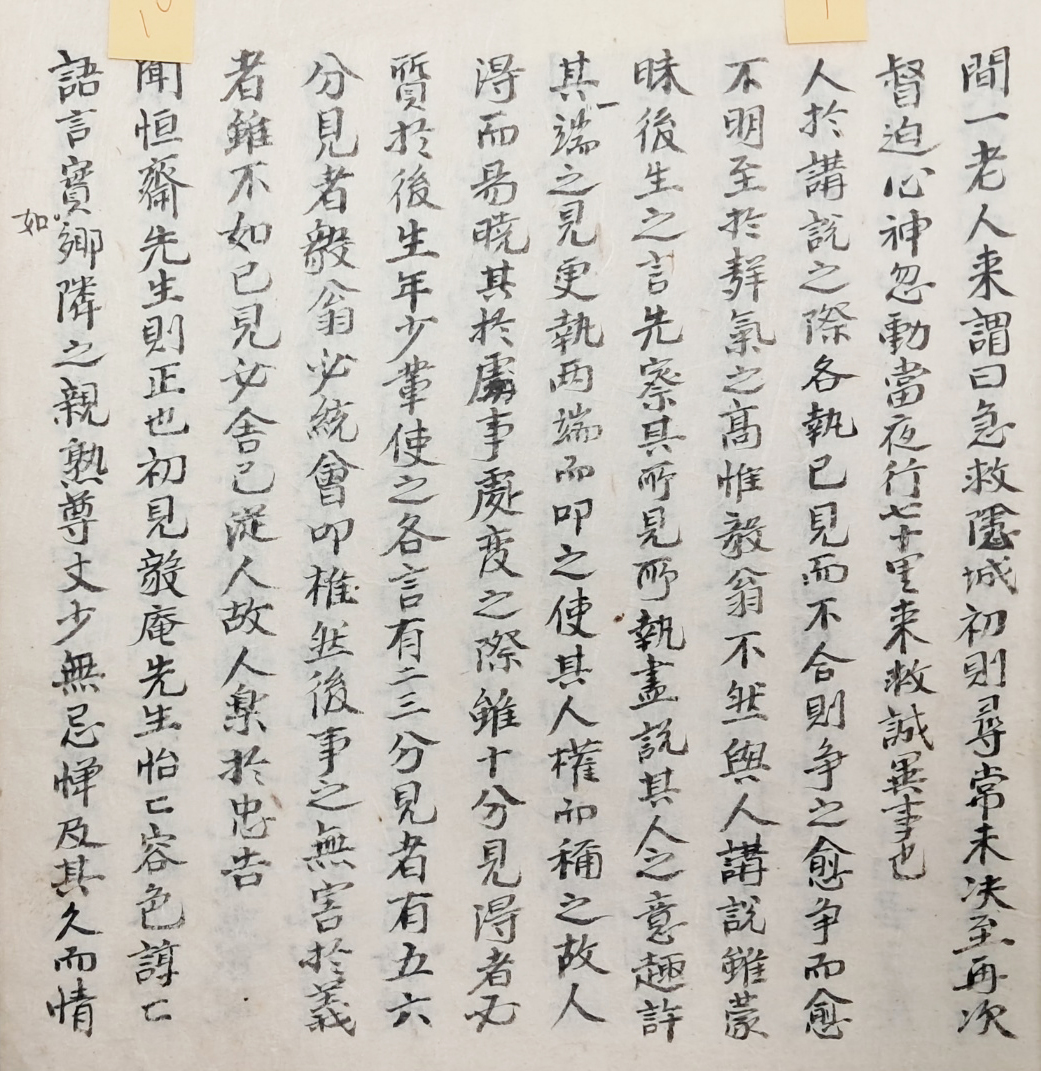 間一老人来謂曰急救隱城初則尋常未决至再次
督迫心神忽動當夜行七十里来救誠異事也
人於講説之際各執已見而不合則争之愈争而愈
不明至於聲氣之髙惟毅翁不然與人講説雖蒙
昧後生之言先察其所見所執盡説其人之意趣許
其一端之見更執两端而叩之使其人權而稱之故人
淂而易曉其於處事處变之際雖十分見得者必
質於後生年少軰使之各言有二三分見者有五六
分見者毅翁必統會叩榷然後事之無害於義
者雖不如已見必舎己從人故人楽於忠告
聞恒齋先生則正也初見毅庵先生怡〻容色諄〻
語言實如鄉隣之親熟尊丈少無忌惮及其久而情